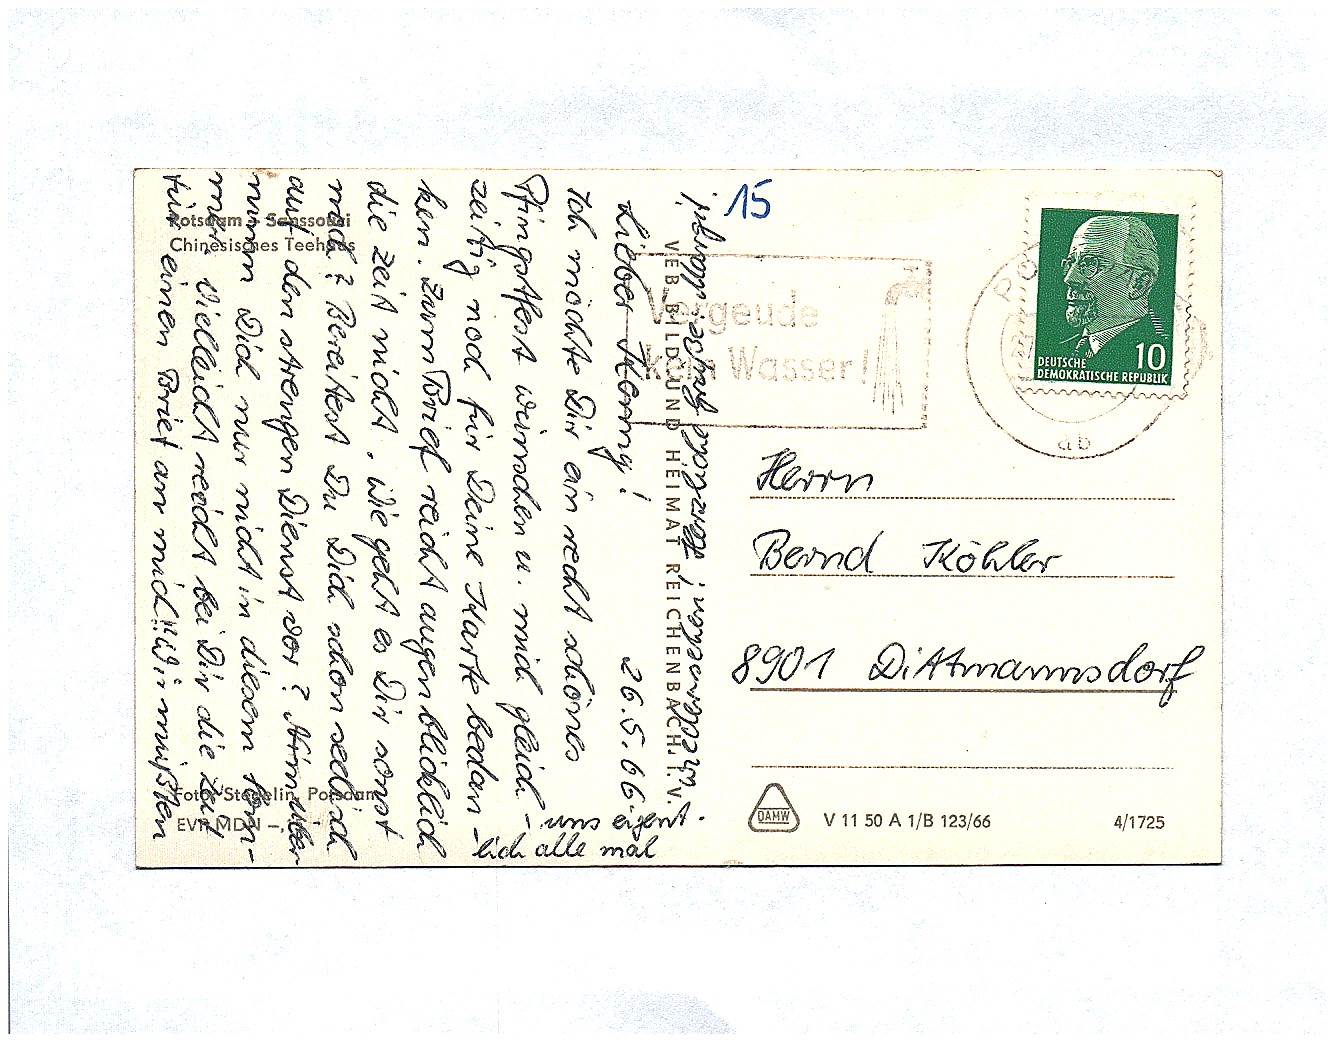 Potsdam - Sanssouci
Chinesisches Teehaus
26.5.66
Lieber Henny!
Ich möchte Dir ein recht schönes
Pfingstfest wünschen u. mich gleich-
zeitig noch für Deine Karte bedan-
ken. Zum Brief reicht augenblicklich
die Zeit nicht. Wie geht es Dir sonst
noch? Bereitest Du Dich schon seelisch
auf den strengen Dienst vor? Nimm
nimm Dich nur nicht in diesem
mehr vielleicht reicht bei Dir die Zeit
für einen Brief an mich!! Wir müßten
uns eigent-
lich alle mal
wiedersehen! Herzlichst grüßt
Foto: Stegelin, Potsdam
EVP MDN -,
VEB BILD UND HEIMAT REICHENBACH I. V.
15
Vergeude
kein Wasser!
ab
DEUTSCHE
DEMOKRATISCHE REPUBLIK
10
Herrn
Bernd Köhler
8901 Dittmannsdorf
DAMW
V 11 50 A 1/B 123/66
4/1725